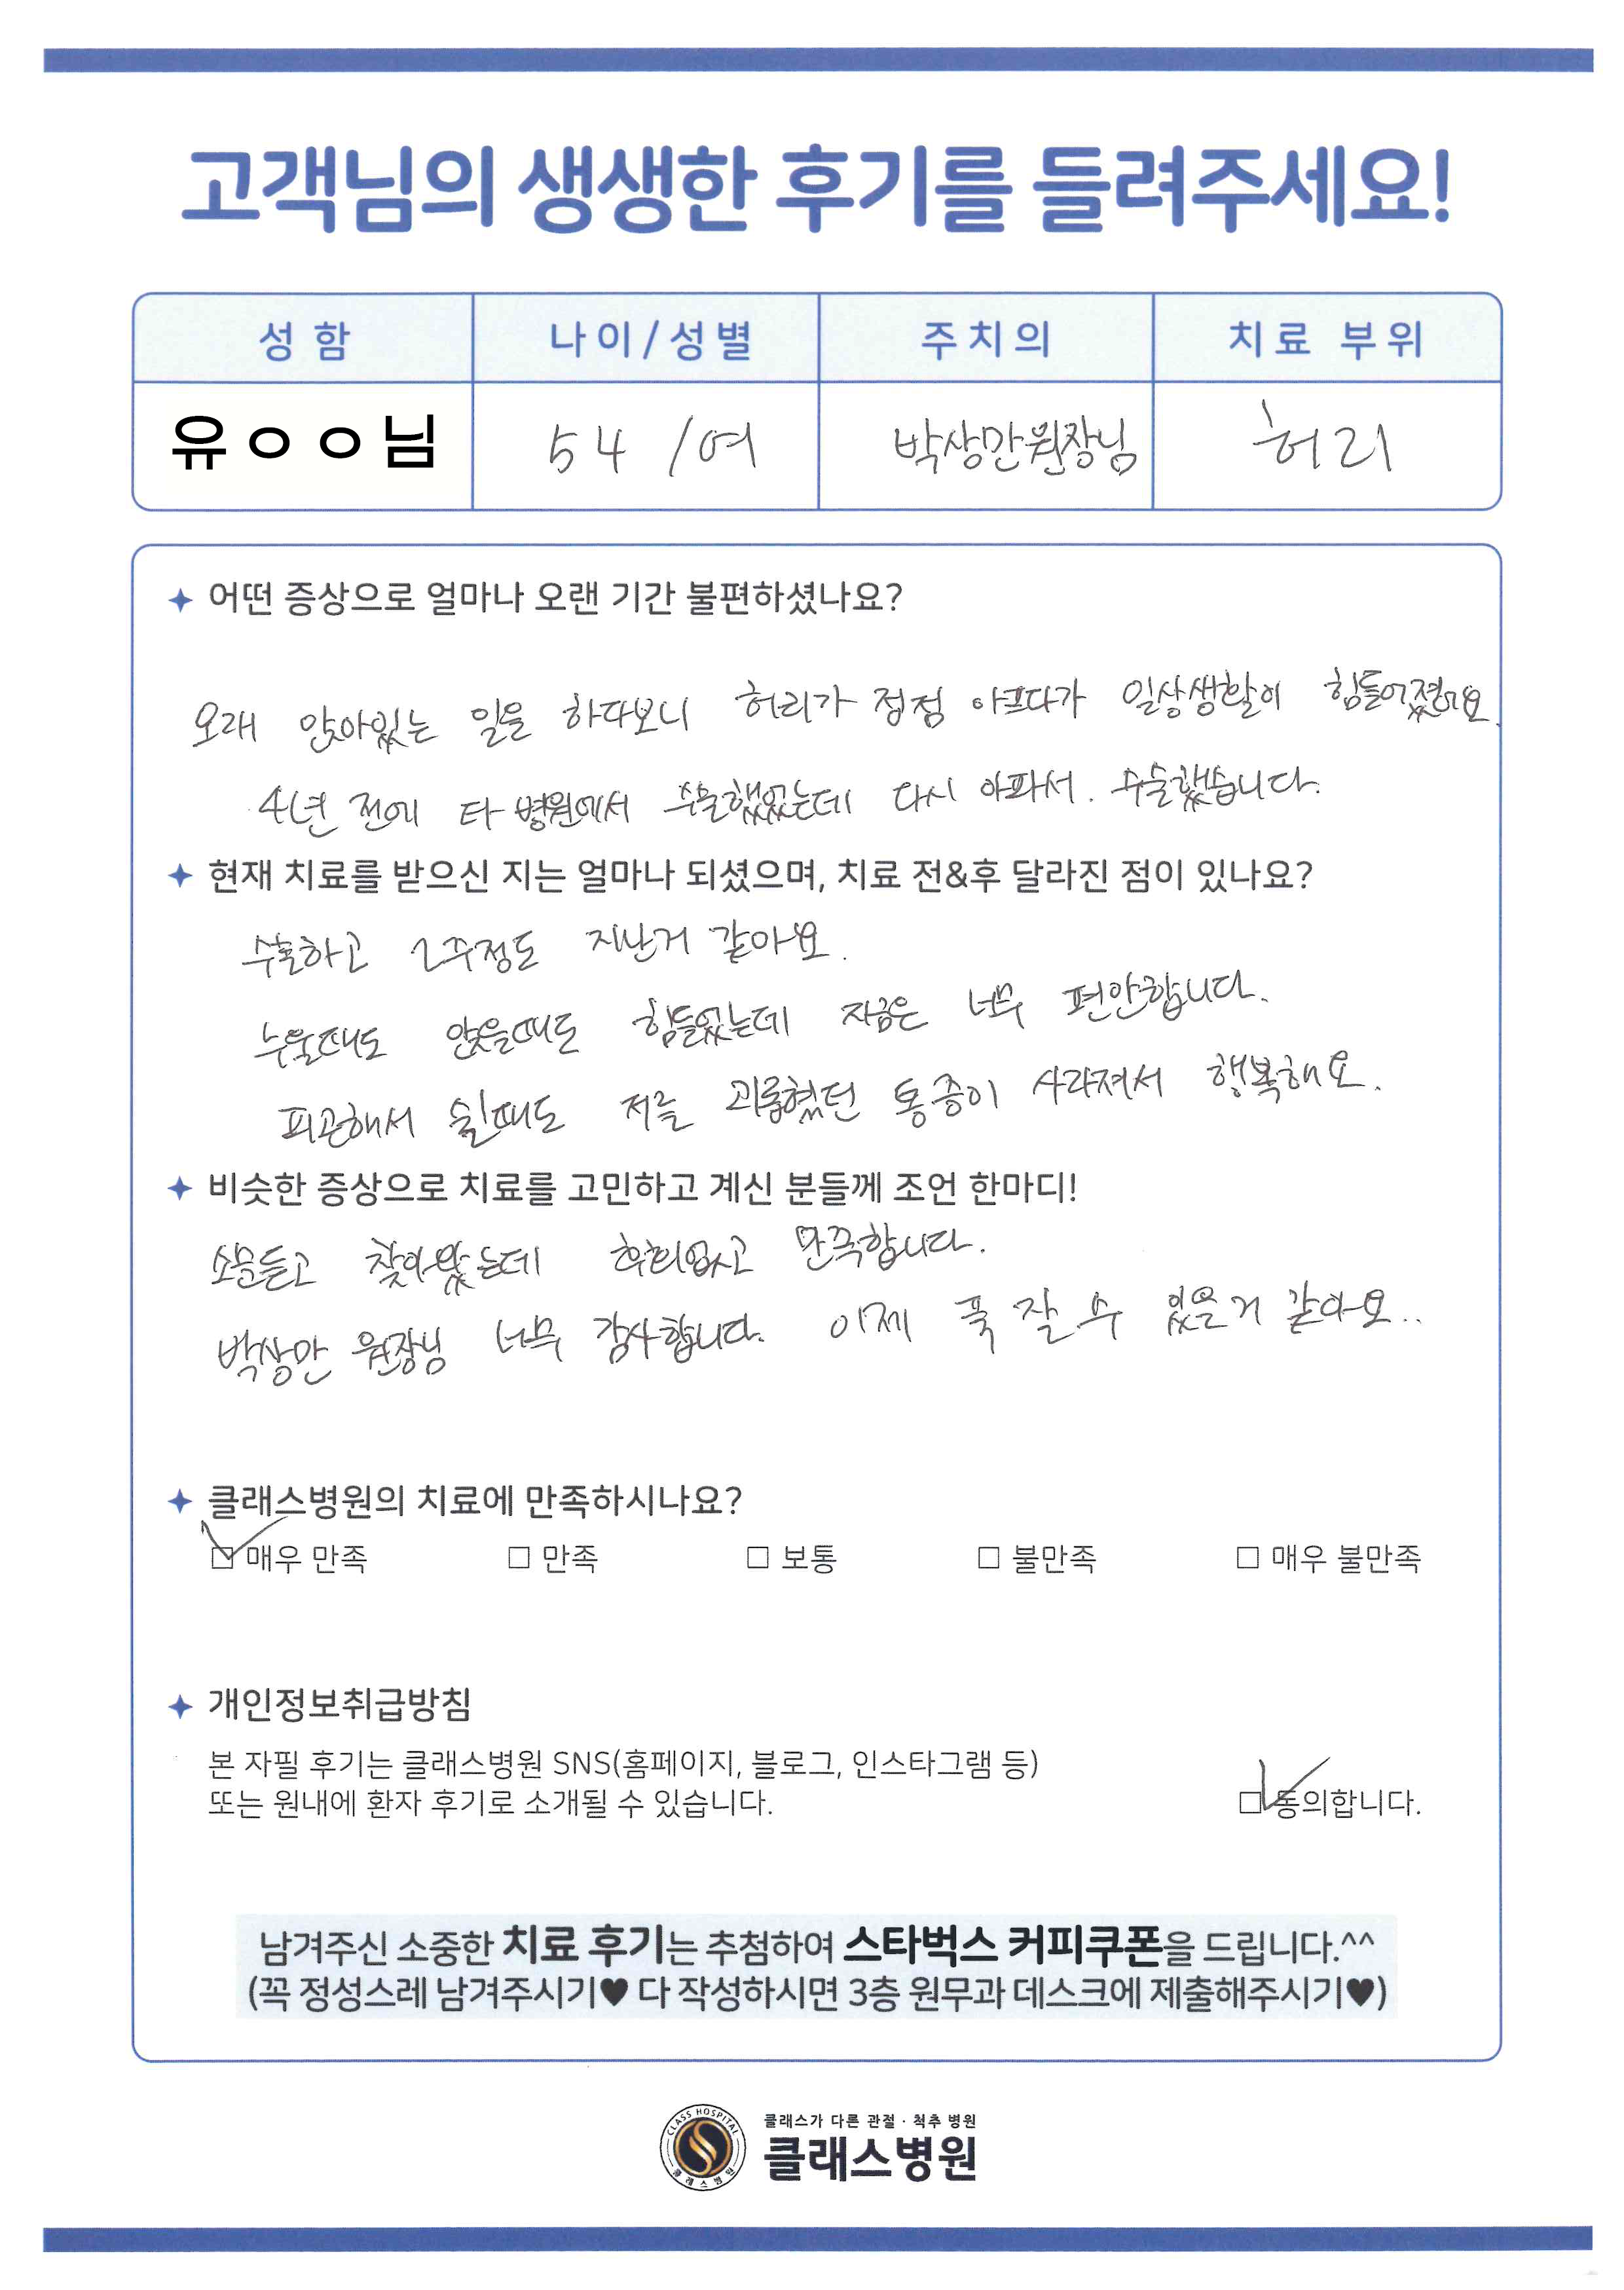 고객님의 생생한 후기를 들려주세요!
성 함 나이/성별 주치의 치료 부위
유ㅇㅇ님 54 /여 박상만원장님 허리
어떤 증상으로 얼마나 오랜 기간 불편하셨나요?
오래 앉아있는 일을 하다보니 허리가 점점 아프다가 일상생활이 힘들어졌어요.
4년 전에 타 병원에서 수술했었는데 다시 아파서. 수술했습니다.
현재 치료를 받으신 지는 얼마나 되셨으며, 치료 전&후 달라진 점이 있나요?
수술하고 2주정도 지난거 같아요.
누울때도 앉을때도 힘들었는데 지금은 너무 편안합니다.
피곤해서 쉴때도 저를 괴롭혔던 통증이 사라져서 행복해요.
비슷한 증상으로 치료를 고민하고 계신 분들께 조언 한마디!
소문듣고 찾아왔는데 후회없고 만족합니다.
박상만 원장님 너무 감사합니다. 이제 푹 잘 수 있을거 같아요..
클래스병원의 치료에 만족하시나요?
매우 만족 만족 보통 불만족 매우 불만족
개인정보취급방침
본 자필 후기는 클래스병원 SNS(홈페이지, 블로그, 인스타그램 등)
또는 원내에 환자 후기로 소개될 수 있습니다. 동의합니다.
남겨주신 소중한 치료 후기는 추첨하여 스타벅스 커피쿠폰을 드립니다.^^
(꼭 정성스레 남겨주시기♥ 다 작성하시면 3층 원무과 데스크에 제출해주시기♥)
CLASS HOSPITAL
클래스병원
클래스가 다른 관절·척추 병원
클래스병원